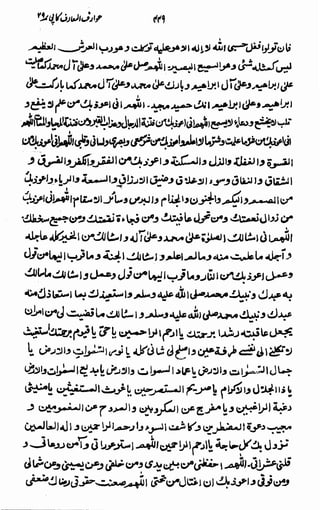 ۴۴۹ عوارف المعارف کا پی ۲۹
فان تولوا فقل حسبی الله لا اله الا هو علیه توکلت و هو رب العرش العظیم
لیس کمثله شئ و هو السمیع البصیر، اللهم صل علی محمد و علی آل محمد کما صلیت
علی ابراهیم و علی آل ابراهیم و بارک علی محمد و علی آل محمد کما بارکت علی
ابراهیم و علی ابراهیم انک حمید مجید. اللهم انی اعوذ بک من علم لا ینفع و
قلب لا یخشع و دعاء لا یسمع اللهم انی اعوذ بک من فتنة الدجال و عذاب القبر و من فتنة المحیا و الممات اللهم
انی اعوذ بک من شر ما علمت و شر ما لم اعلم و اعوذ بک من شر سمعی و بصری و لسانی و قلبی اللهم انی اعوذ بک من
القسوة و الغفلة و الذل و المسکنة و اعوذ بک من الفقر و الکفر و الفسوق و
الشقاق و النفاق و سوء الاخلاق و ضیق الارزاق و السمعة و الریاء و اعوذ بک
من الصمم و البکم و الجنون و الجذام و البرص و سائر الاسقام اللهم انی اعوذ بک
من زوال نعمتک و من تحول عافیتک و من فجاءة نقمتک و من جمیع سخطک
اللهم انی اسالک الصلوة علی محمد و علی آله و اسالک من الخیر کله عاجله
و آجله ما علمت منه و ما لم اعلم و اسالک الجنة و ما قرب الیها من قول
و عمل اعوذ بک من النار و ما قرب الیها من قول و عمل و اسالک ما سالک
به عبدک و نبیک محمد صلی الله علیه و سلم و استعیذ بک بما استعاذک منه
عبدک و نبیک محمد صلی الله علیه و سلم و اسالک ما قضیت لی من امر ان
یجعل عاقبته رشدا برحمتک یا ارحم الراحمین یا حی یا قیوم برحمتک استغیث
لا تکلنی الی نفسی طرفة عین و اصلح لی شانی کله یا نور السموات و الارض یا
جمال السموات و الارض یا عماد السموات و الارض یا بدیع السموات و الارض
یا ذا الجلال و الاکرام یا صریخ المستصرخین یا غوث المستغیثین یا منتهی
رغبة الراغبین و یا مفرج عن المکروبین و المروح عن المغمومین و
مجیب دعوة المضطرین و کاشف السوء و ارحم الراحمین و اله العالمین
نزول بک کل حاجة یا ارحم الراحمین اللهم استر عوراتی و آمن روعاتی و
قلنی عثراتی. اللهم احفظنی من بین یدی و من خلفی و عن یمینی و عن شمالی
و من فوقی و اعوذ بک ان اغتال من تحتی اللهم ضعفی